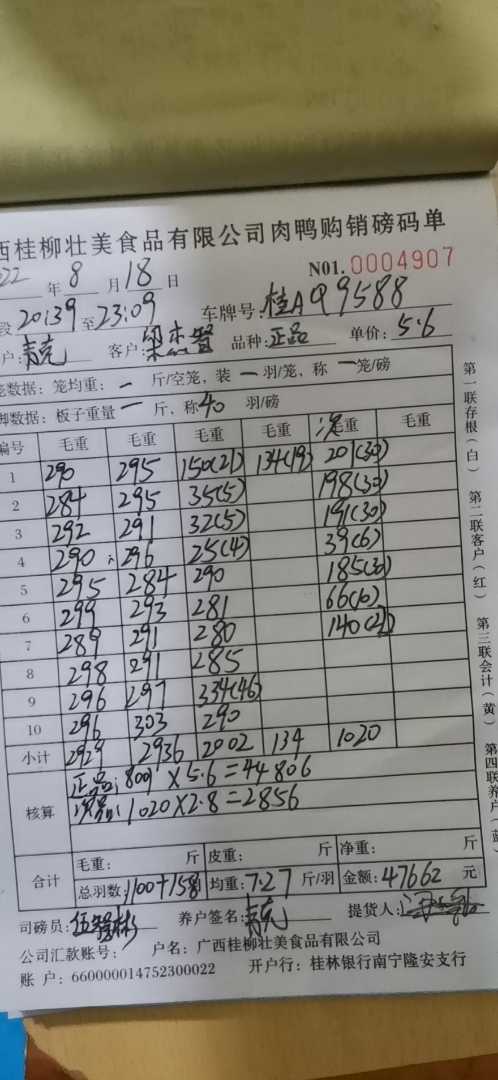 西桂柳壮美食品有限公司肉鸭购销磅码单
22年8月18日 N01.0004907
段20:39至23:09 车牌号:桂AQ9588
户: 客户:梁 品种:正品 单价:5.6
笼数据:笼均重:一斤/空笼,装一羽/笼,称一笼/磅
脚数据:板子重量一斤,称40羽/磅
编号 毛重 毛重 毛重 毛重 次毛重 毛重
1 290 295 150(21) 134(19) 201(30)
2 284 295 35(5) 198(30)
3 292 291 32(5) 191(30)
4 290 296 25(4) 39(6)
5 295 284 290 185(30)
6 299 293 281 66(10)
7 289 291 280 140(22)
8 298 291 285
9 296 297 334(46)
10 296 303 290
小计 2929 2936 2002 134 1020
核算 正品:8001×5.6=44806
次品:1020×2.8=2856
合计 毛重: 斤 皮重: 斤 净重: 斤
总羽数:1100+158 均重:7.27斤/羽 金额:47662元
司磅员:伍 养户签名: 提货人:
公司汇款账号: 户名:广西桂柳壮美食品有限公司
账 户:660000014752300022 开户行:桂林银行南宁隆安支行
第一联存根(白)
第二联客户(红)
第三联会计(黄)
第四联养户(蓝)